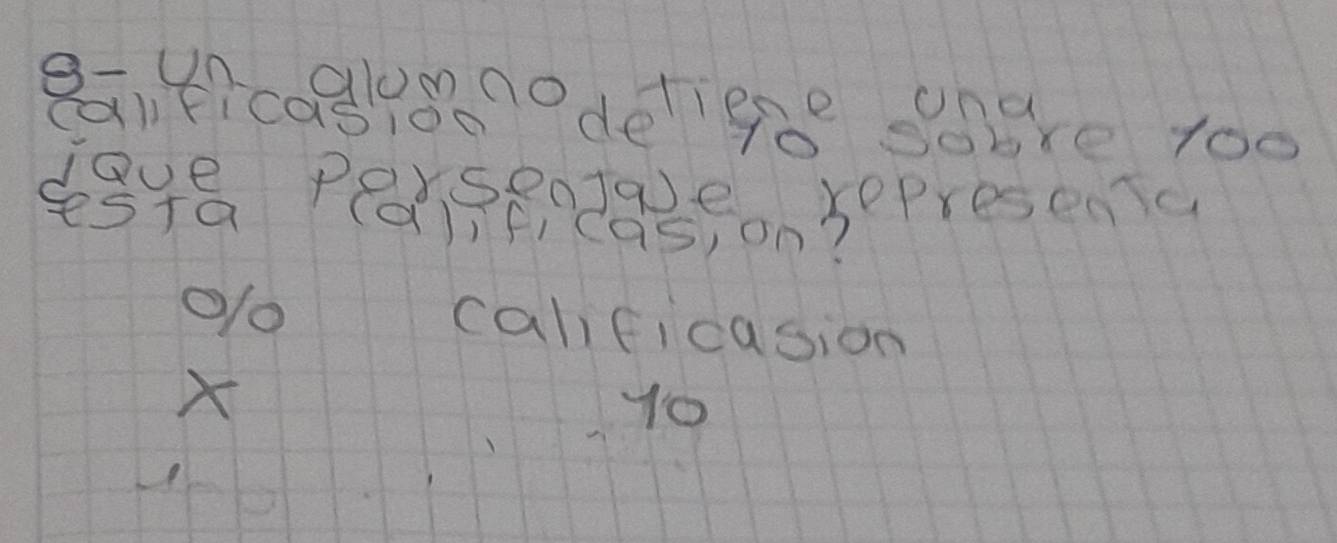 8- Un alumno tiene una
calificasion de 10 sobre 100
¿que Persentaje representa
esta calificasion?
% calificasion
X 10